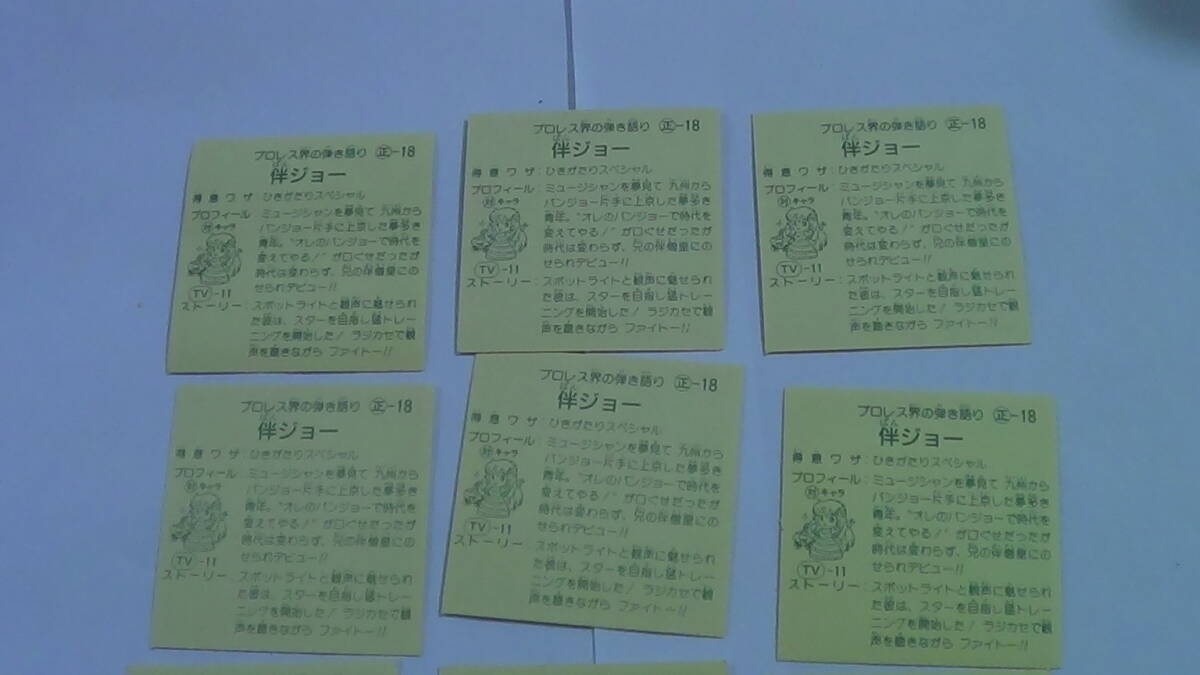 プロレス界の弾き語り ㊣-18
ばん
伴ジョー
得意ワザ：ひきがたりスペシャル
プロフィール：ミュージシャンを夢見て 九州から
バンジョー片手に上京した夢多き
青年。“オレのバンジョーで時代を
変えてやる！”が口ぐせだったが
時代は変わらず、兄の伴僧皇にの
せられデビュー!!
対キャラ
TV-11
ストーリー：スポットライトと観声に魅せられ
た彼は、スターを目指し猛トレー
ニングを開始した！ ラジカセで観
声を聴きながら ファイトー!!
プロレス界の弾き語り ㊣-18
ばん
伴ジョー
得意ワザ：ひきがたりスペシャル
プロフィール：ミュージシャンを夢見て 九州から
バンジョー片手に上京した夢多き
青年。“オレのバンジョーで時代を
変えてやる！”が口ぐせだったが
時代は変わらず、兄の伴僧皇にの
せられデビュー!!
対キャラ
TV-11
ストーリー：スポットライトと観声に魅せられ
た彼は、スターを目指し猛トレー
ニングを開始した！ ラジカセで観
声を聴きながら ファイトー!!
プロレス界の弾き語り ㊣-18
ばん
伴ジョー
得意ワザ：ひきがたりスペシャル
プロフィール：ミュージシャンを夢見て 九州から
バンジョー片手に上京した夢多き
青年。“オレのバンジョーで時代を
変えてやる！”が口ぐせだったが
時代は変わらず、兄の伴僧皇にの
せられデビュー!!
対キャラ
TV-11
ストーリー：スポットライトと観声に魅せられ
た彼は、スターを目指し猛トレー
ニングを開始した！ ラジカセで観
声を聴きながら ファイトー!!
プロレス界の弾き語り ㊣-18
ばん
伴ジョー
得意ワザ：ひきがたりスペシャル
プロフィール：ミュージシャンを夢見て 九州から
バンジョー片手に上京した夢多き
青年。“オレのバンジョーで時代を
変えてやる！”が口ぐせだったが
時代は変わらず、兄の伴僧皇にの
せられデビュー!!
対キャラ
TV-11
ストーリー：スポットライトと観声に魅せられ
た彼は、スターを目指し猛トレー
ニングを開始した！ ラジカセで観
声を聴きながら ファイトー!!
プロレス界の弾き語り ㊣-18
ばん
伴ジョー
得意ワザ：ひきがたりスペシャル
プロフィール：ミュージシャンを夢見て 九州から
バンジョー片手に上京した夢多き
青年。“オレのバンジョーで時代を
変えてやる！”が口ぐせだったが
時代は変わらず、兄の伴僧皇にの
せられデビュー!!
対キャラ
TV-11
ストーリー：スポットライトと観声に魅せられ
た彼は、スターを目指し猛トレー
ニングを開始した！ ラジカセで観
声を聴きながら ファイトー!!
プロレス界の弾き語り ㊣-18
ばん
伴ジョー
得意ワザ：ひきがたりスペシャル
プロフィール：ミュージシャンを夢見て 九州から
バンジョー片手に上京した夢多き
青年。“オレのバンジョーで時代を
変えてやる！”が口ぐせだったが
時代は変わらず、兄の伴僧皇にの
せられデビュー!!
対キャラ
TV-11
ストーリー：スポットライトと観声に魅せられ
た彼は、スターを目指し猛トレー
ニングを開始した！ ラジカセで観
声を聴きながら ファイトー!!